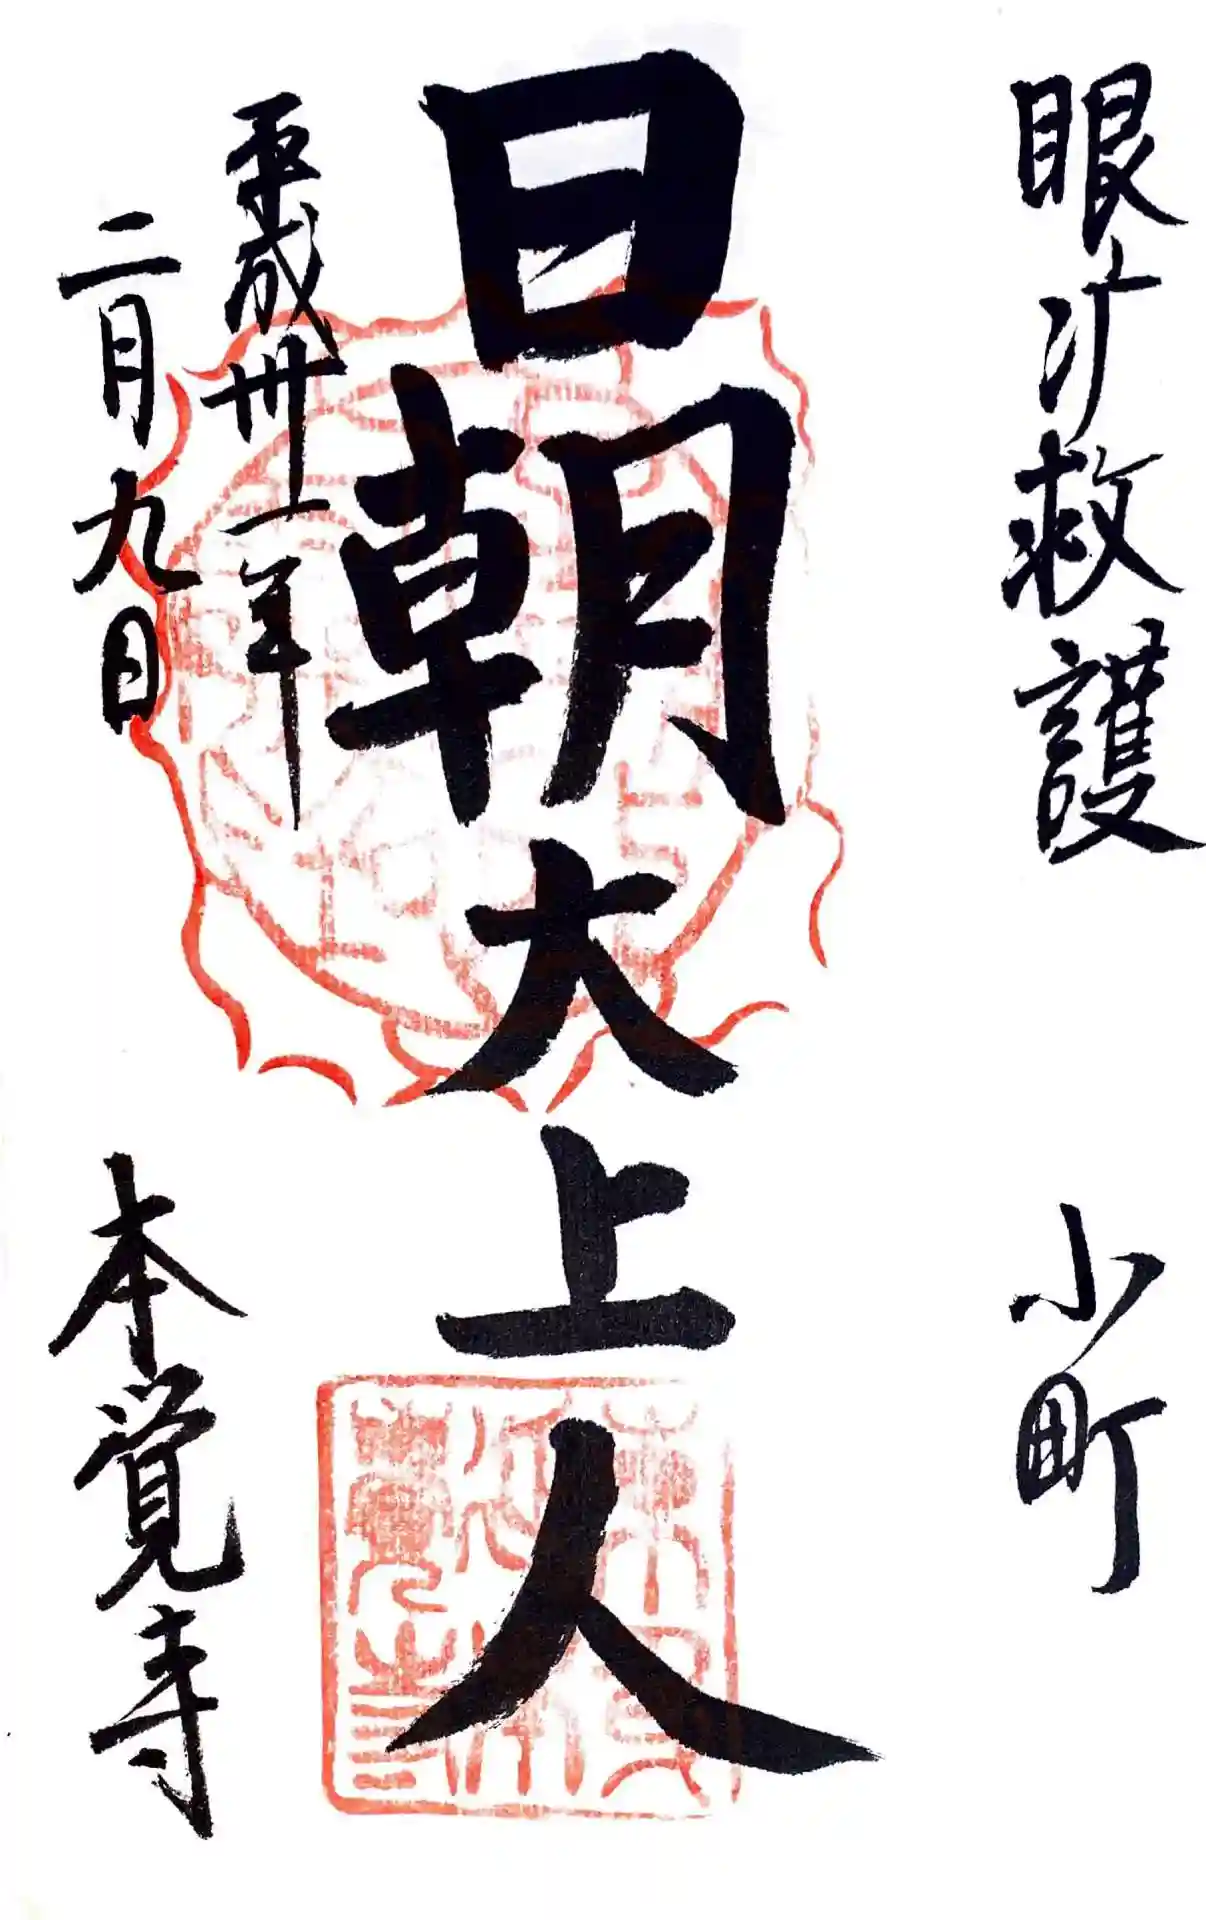 眼疒救護
小町
日朝大上人
平成卅一年
二月九日
本覚寺